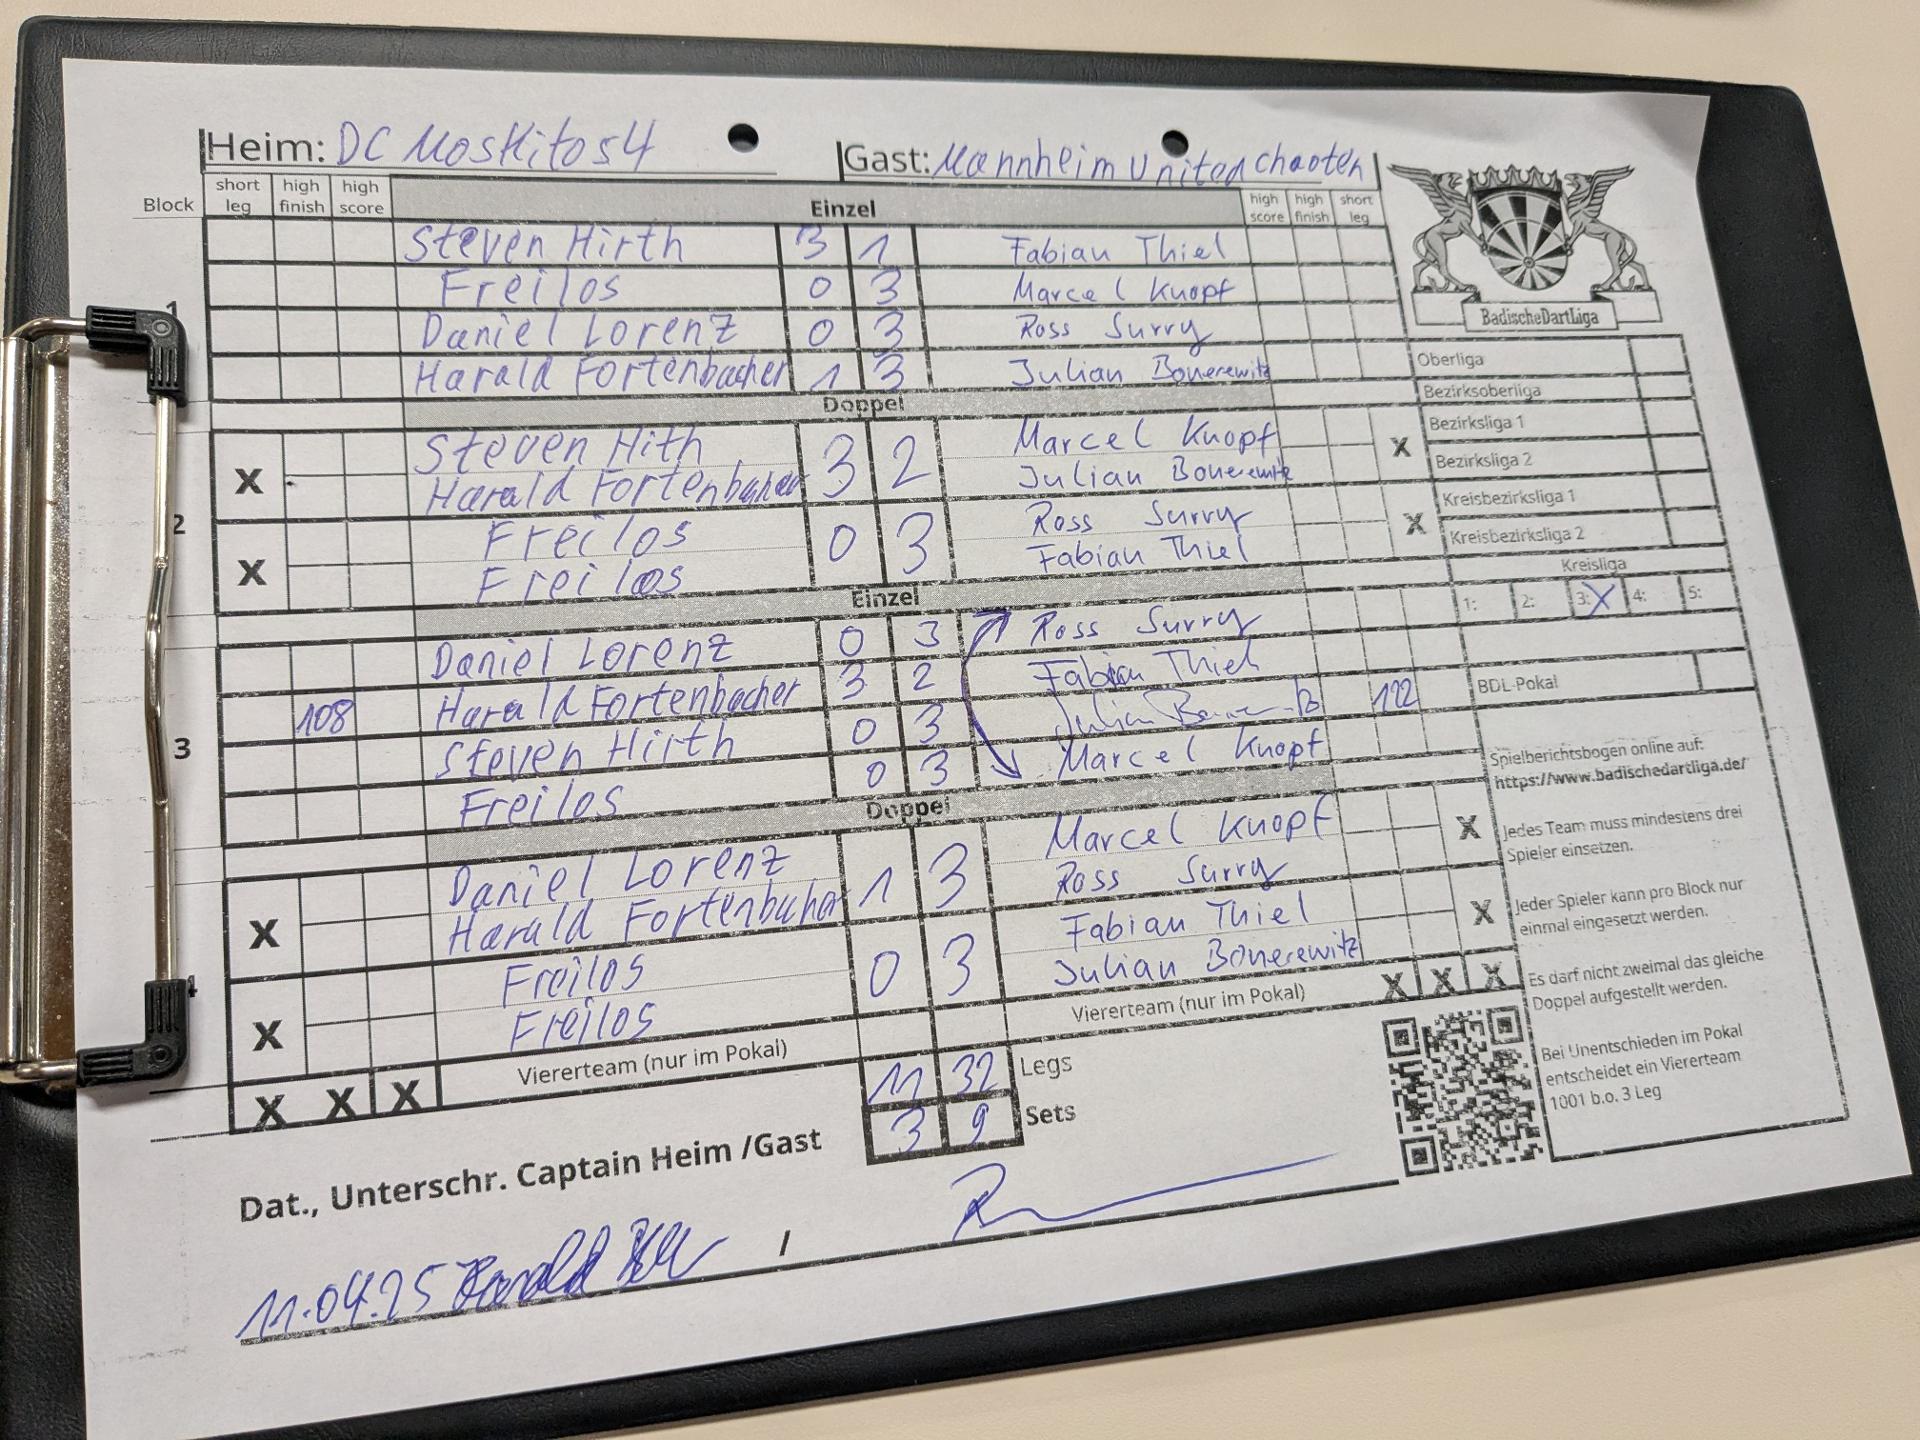 Heim: DC Moskitos 4 Gast: Mannheim United Chaoten
Block short leg high finish high score Einzel high score high finish short leg
1
Steven Hirth 3 1 Fabian Thiel
Freilos 0 3 Marcel Knopf
Daniel Lorenz 0 3 Ross Surry
Harald Fortenbacher 1 3 Julian Bonerewitz
Doppel
2
X Steven Hith 3 2 Marcel Knopf X
Harald Fortenbacher Julian Bonerewitz
X Freilos 0 3 Ross Surry X
Freilos Fabian Thiel
Einzel
3
Daniel Lorenz 0 3 Ross Surry
108 Harald Fortenbacher 3 2 Fabian Thiel
Steven Hirth 0 3 Julian 122
Freilos 0 3 Marcel Knopf
Doppel
4
X Daniel Lorenz 1 3 Marcel Knopf X
Harald Fortenbacher Ross Surry
X Freilos 0 3 Fabian Thiel X
Freilos Julian Bonerewitz
X X X Viererteam (nur im Pokal) Viererteam (nur im Pokal) X X X
11 32 Legs
3 9 Sets
Dat., Unterschr. Captain Heim /Gast
11.04.25 Harald /
BadischeDartLiga
Oberliga
Bezirksoberliga
Bezirksliga 1
Bezirksliga 2
Kreisbezirksliga 1
Kreisbezirksliga 2
Kreisliga
1: 2: 3: X 4: 5:
BDL-Pokal
Spielberichtsbogen online auf:
https://www.badischedartliga.de/
Jedes Team muss mindestens drei
Spieler einsetzen.
Jeder Spieler kann pro Block nur
einmal eingesetzt werden.
Es darf nicht zweimal das gleiche
Doppel aufgestellt werden.
Bei Unentschieden im Pokal
entscheidet ein Viererteam
1001 b.o. 3 Leg